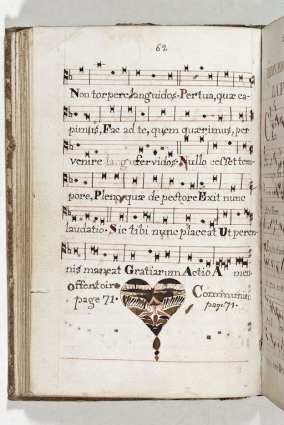 62
Non torpere languidos. Pertua, quæ ca-
pimus, Fac ad te, quem quærimus, per
venire fervidos. Nullo cesset tem-
pore, Pleno quæ de pectore Exit nunc
laudatio. Sic tibi nunc placeat Ut peren-
nis maneat Gratiarum Actio A men.
offertoire
page 71.
Communion
page 71.